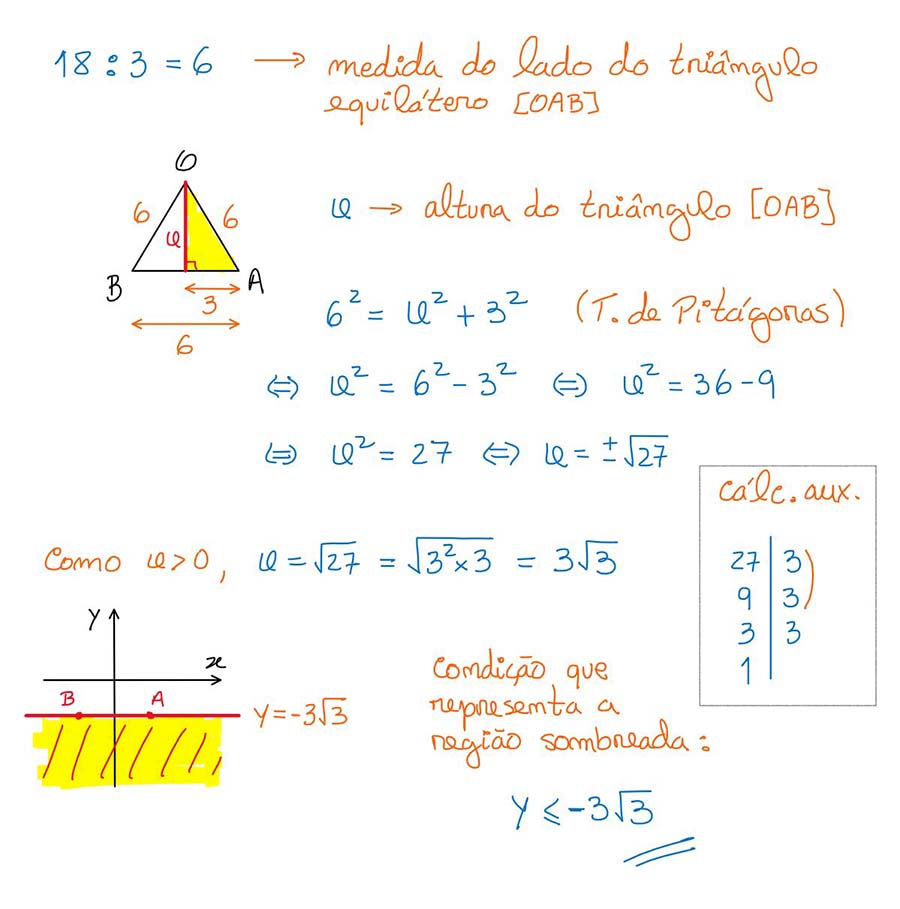 18 : 3 = 6 → medida do lado do triângulo
equilátero [OAB]
O
6
6
h
B
A
3
6
h → altura do triângulo [OAB]
6² = h² + 3² (T. de Pitágoras)
⇔ h² = 6² - 3² ⇔ h² = 36 - 9
⇔ h² = 27 ⇔ h = ±√27
cálc. aux.
27 | 3
9 | 3
3 | 3
1 |
Como h > 0, h = √27 = √(3² × 3) = 3√3
y
x
B
A
y = -3√3
condição que
representa a
região sombreada:
y ⩽ -3√3